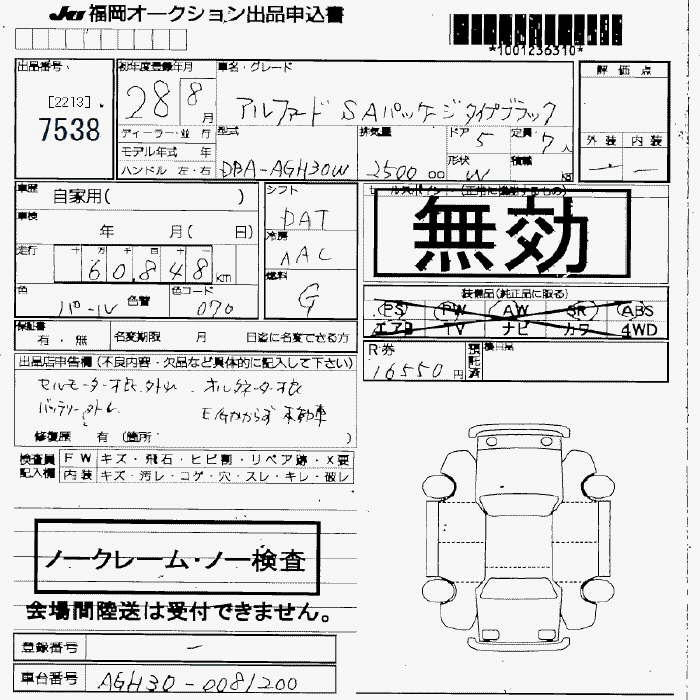 JU 福岡オークション出品申込書
*1001236310*
出品番号
[2213]
7538
初年度登録年月
28年 8月
車名・グレード
アルファード SAパッケージタイプブラック
評価点
外装 内装
ー ー
ディーラー・並行
モデル年式 年
ハンドル 左・右
型式
DBA-AGH30W
排気量
2500 cc
ドア 5
形状 W
定員 7人
積載 kg
車歴
自家用( )
車検
年 月( 日)
走行
十 万 千 百 十 一
60,848 km
色
パール
色替
色コード
070
シフト
DAT
冷房
AAC
燃料
G
セールスポイント(正常に機能するもの)
無効
装備品(純正品に限る)
PS PW AW SR ABS
エアB TV ナビ カワ 4WD
保証書
有・無
名変期限 月 日迄に名変できる方
R券
16550円
預託済
備考欄
出品店申告欄(不良内容・欠品など具体的に記入して下さい)
セルモーター欠品外ム オルタネーター欠
バッテリー外ム E/Gかからず 不動車
修復歴 有 (箇所 )
検査員記入欄
FW キズ・飛石・ヒビ割・リペア跡・X要
内装 キズ・汚レ・コゲ・穴・スレ・キレ・破レ
ノークレーム・ノー検査
会場間陸送は受付できません。
登録番号
ー
車台番号
AGH30-0081200